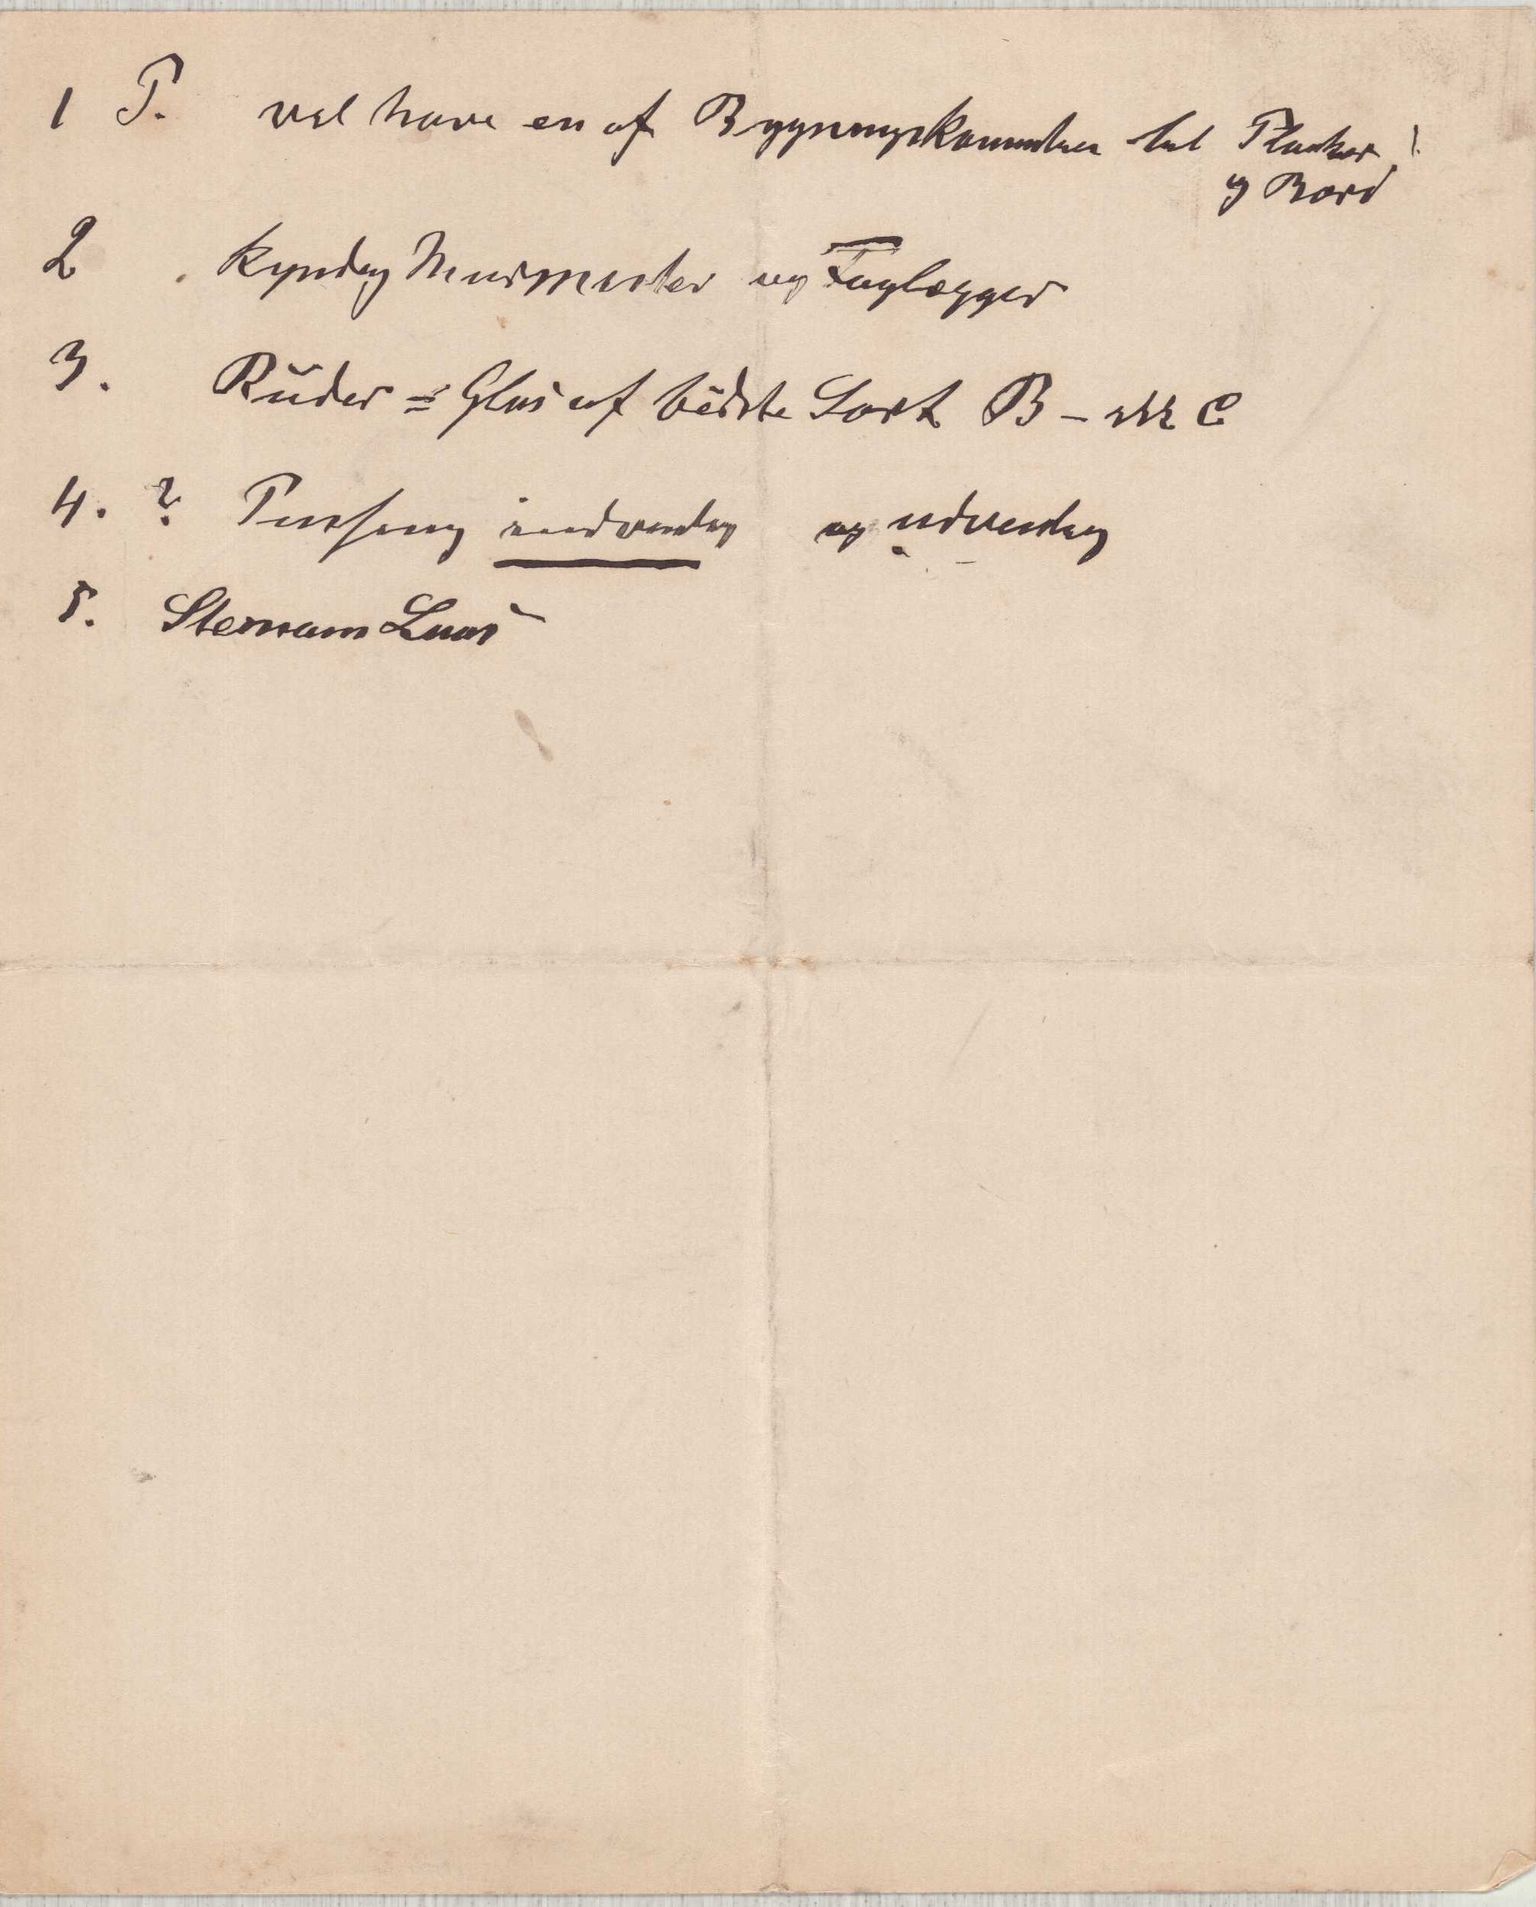 1 P. vil have en af Bygningskomiteen til Planker!
og Bord
2 kyndig Murmester og Taglægger
3. Ruder = Glas af bedste Sort B – ikke C
4. ? Pudsning indvendig og udvendig
5. Laas